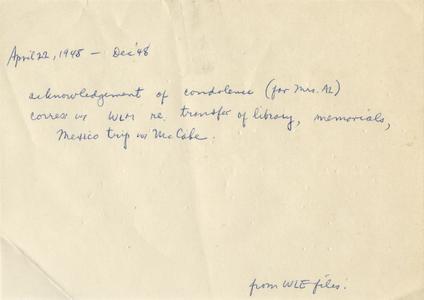 April 22, 1948 - Dec '48
acknowledgement of condolence (for Mrs. AL)
corres w WLM re. transfer of library, memorials,
Mexico trip w McCabe.
from WLE files.